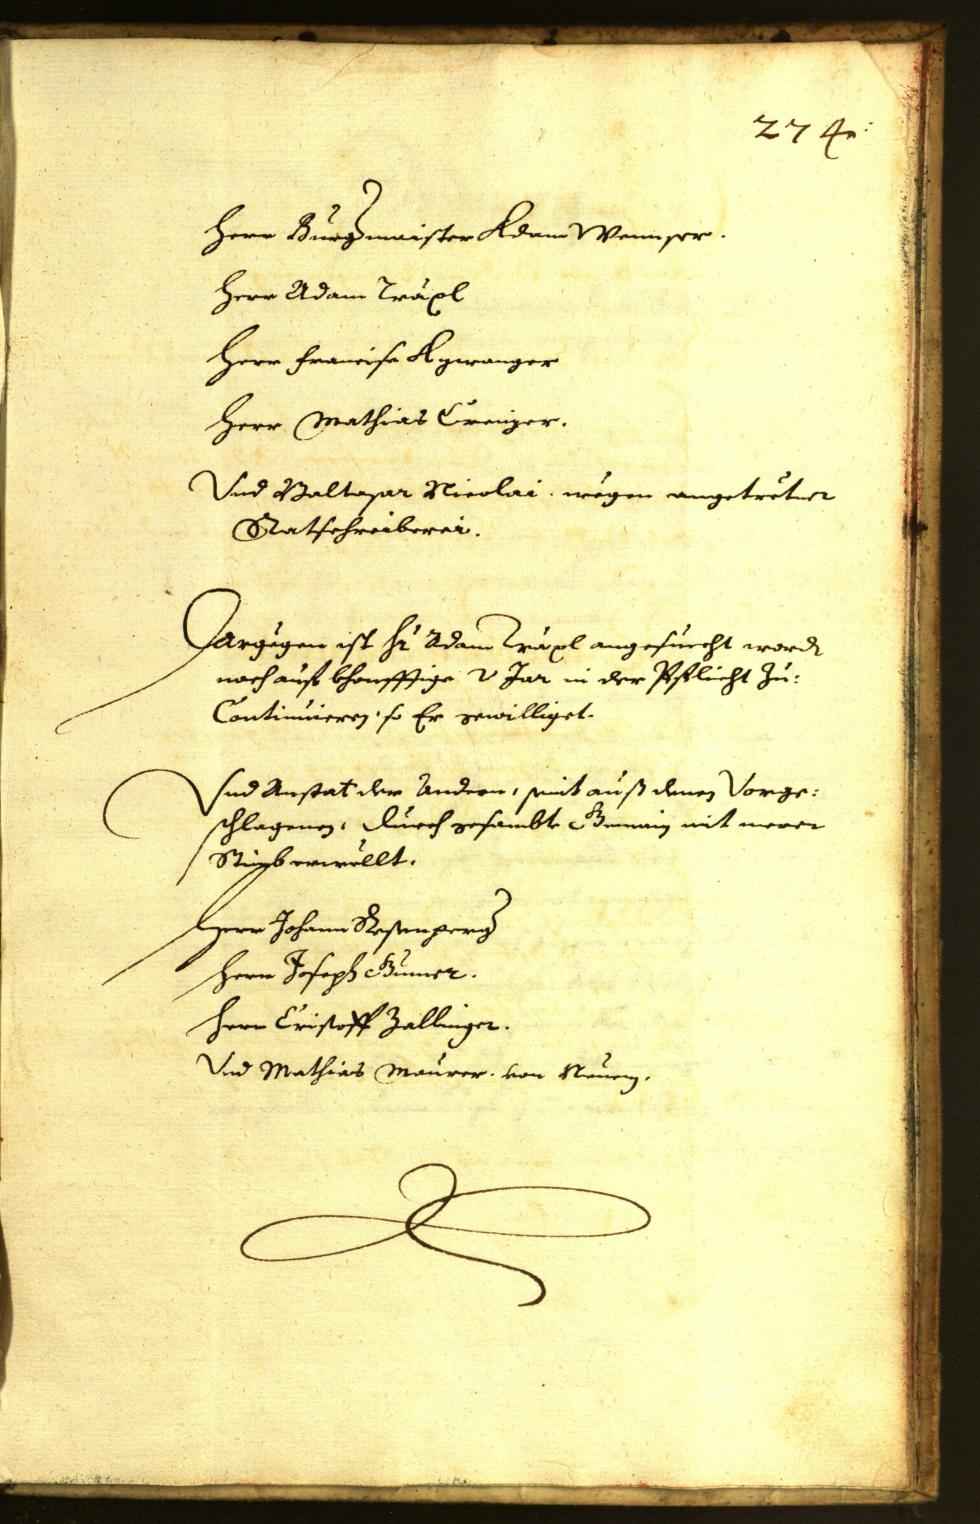 274.
Herr Burgmaister Adam Wennser.
Herr Adam Träxl
Herr Francisc Agwanger
Herr Mathias Creizer.
Vnd Baltasar Nicolai. wegen angetretner
Statschreiberei.
Dargegen ist Hr Adam Träxl angesuecht word
noch auf khonfftige 2 Jar in der Pflicht zu:
Continuieren, so Er gewilliget.
Vnd Anstat der Andern, seint auß denen Vorge:
schlagenen, durch gesambte Gemain mit merer
Stimb erwöllt.
Herr Johann
Herr Joseph Gumer.
Herr Cristoff Zallinger.
Vnd Mathias Maurer. von Neuem.